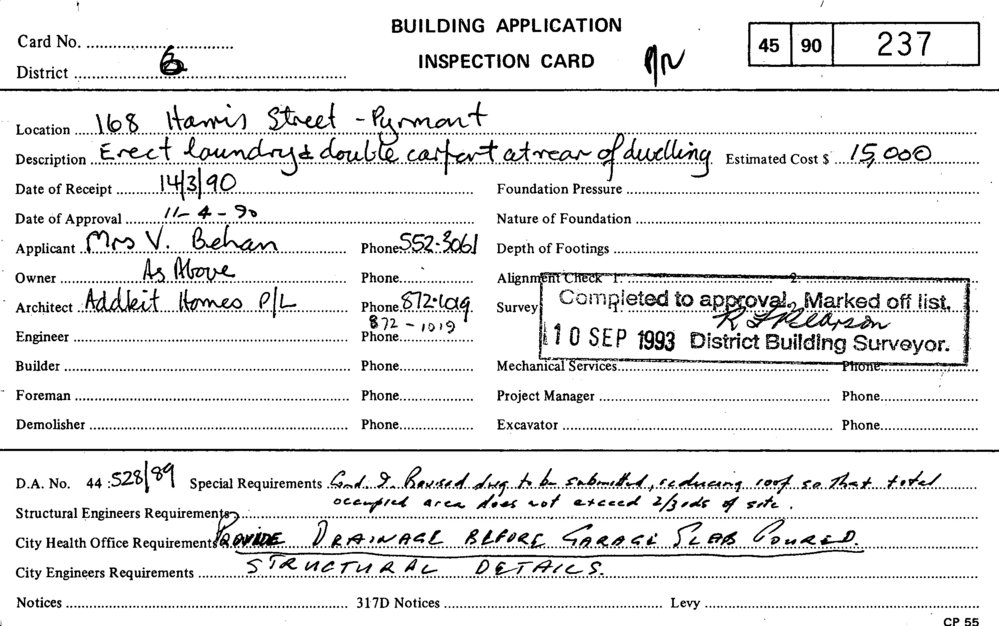 BUILDING APPLICATION
INSPECTION CARD
45 90 237
Card No.
District 6
Location 168 Harris Street - Pyrmont
Description Erect laundry & double carport at rear of dwelling Estimated Cost $ 15,000
Date of Receipt 14/3/90 Foundation Pressure
Date of Approval 11-4-90 Nature of Foundation
Applicant Mrs V. Behan Phone 552-3061 Depth of Footings
Owner As Above Phone Alignment Check 1 2
Architect Addkit Homes P/L Phone 872-1019 Survey
872-1019
Completed to approval, Marked off list.
R L Pearson
10 SEP 1993 District Building Surveyor.
Engineer Phone
Builder Phone Mechanical Services Phone
Foreman Phone Project Manager Phone
Demolisher Phone Excavator Phone
D.A. No. 44 : 528/89 Special Requirements Cond. 2. Revised dwg to be submitted, reducing roof so that total
occupied area does not exceed 2/3rds of site.
Structural Engineers Requirements
City Health Office Requirements PROVIDE DRAINAGE BEFORE GARAGE SLAB POURED.
City Engineers Requirements STRUCTURAL DETAILS.
Notices 317D Notices Levy
CP 55